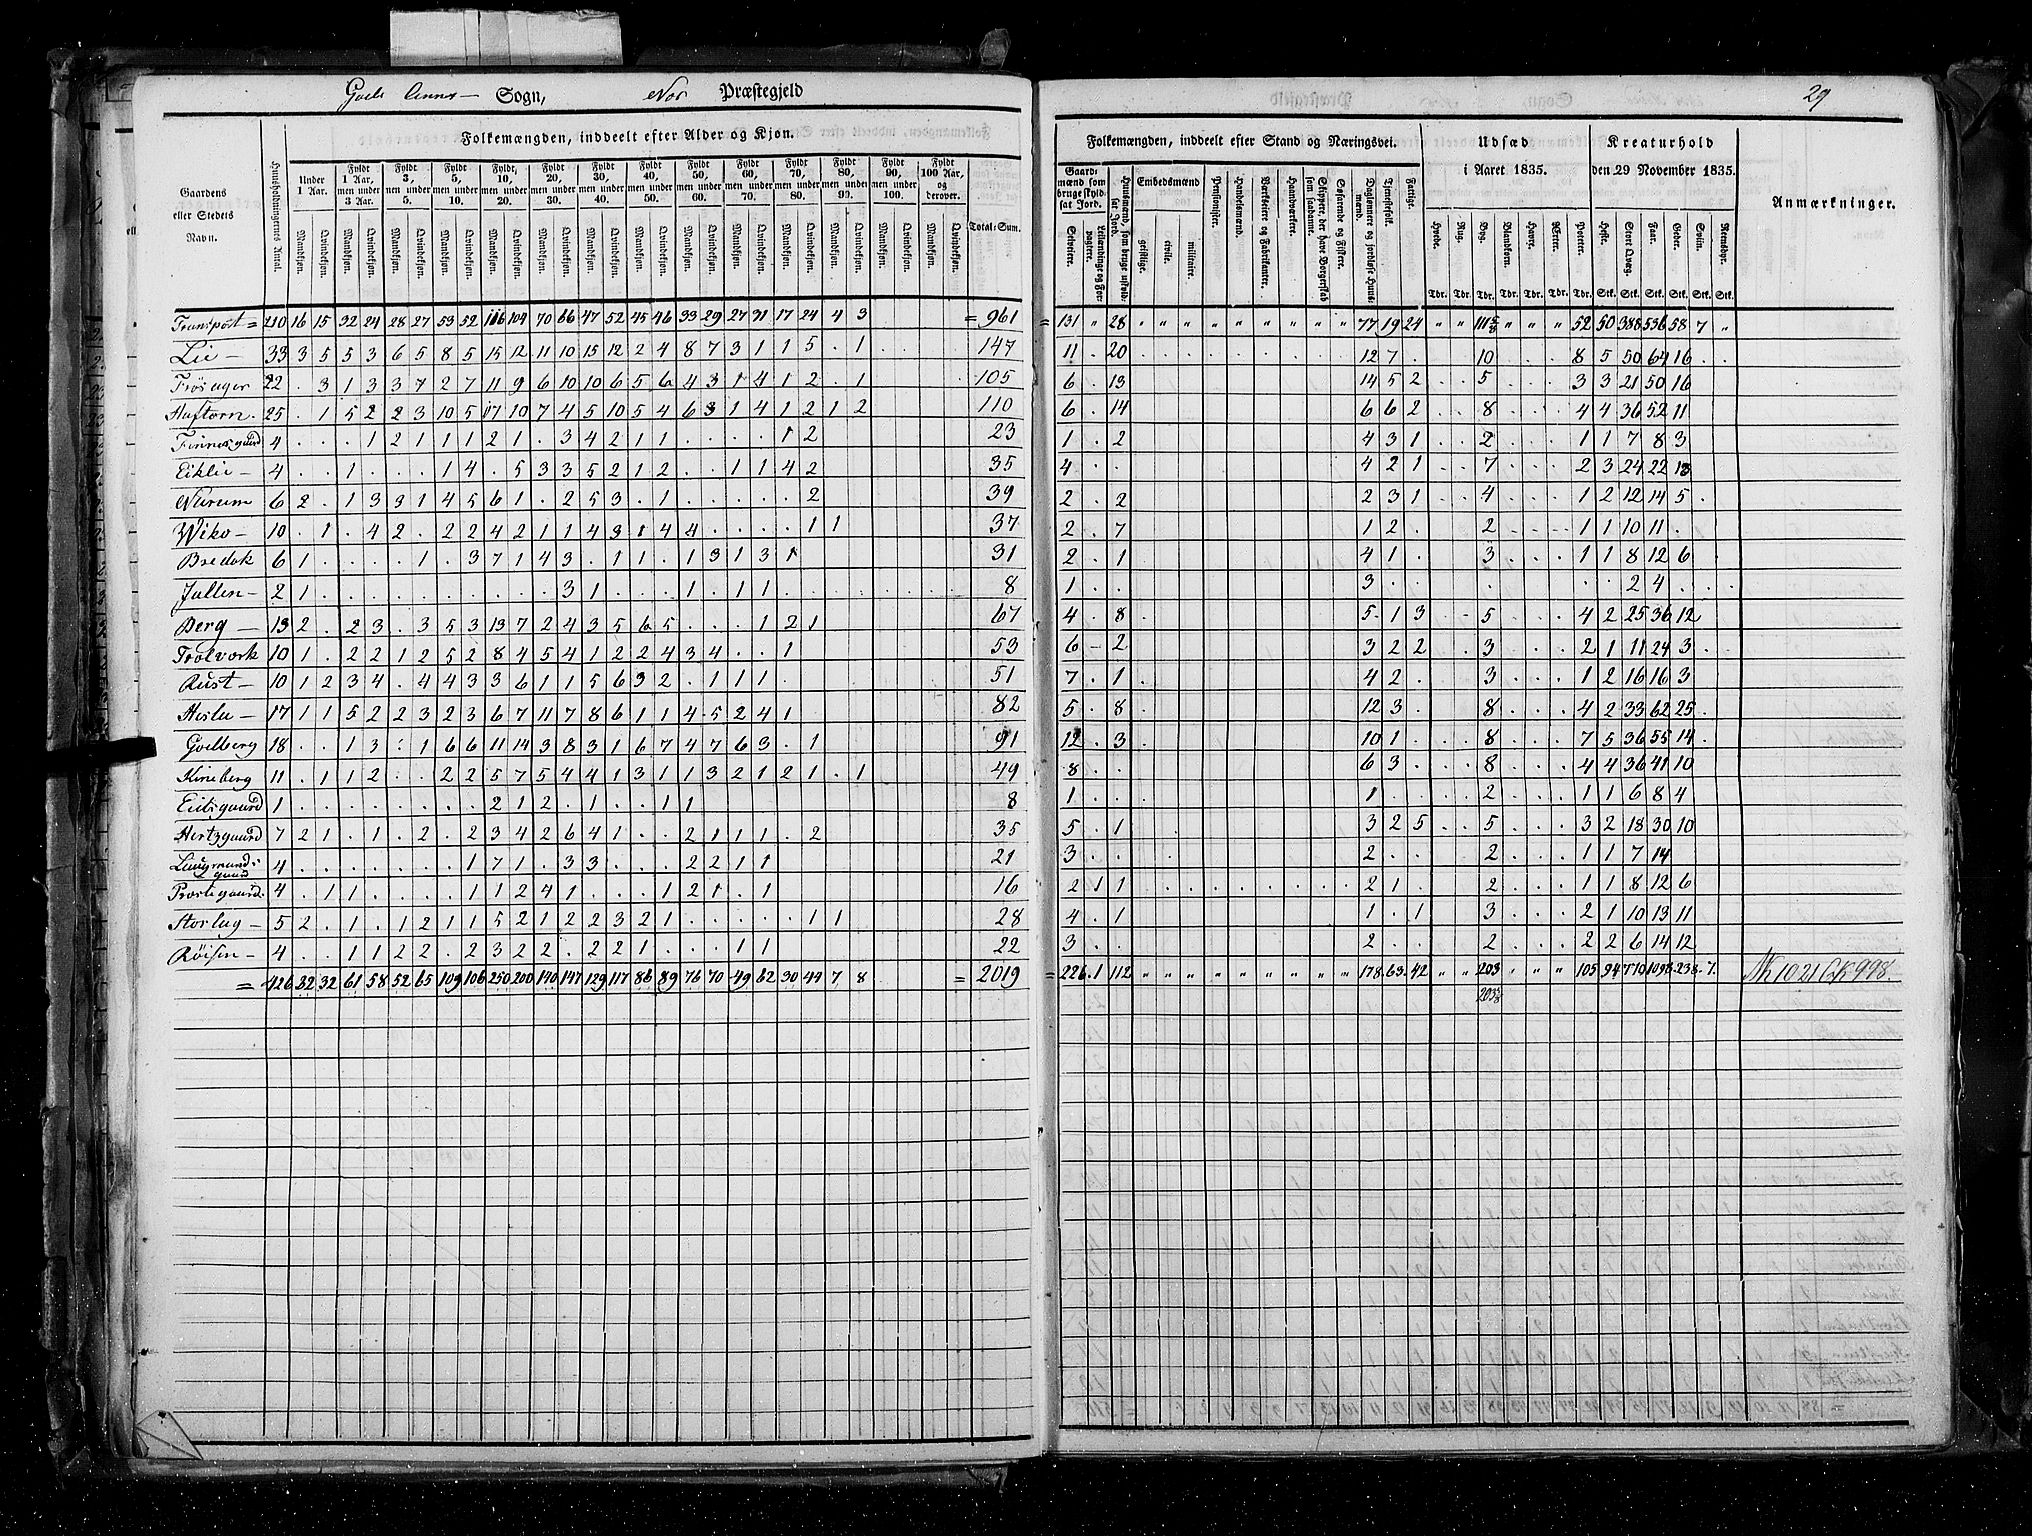 Sogn, Præstegjeld 29
Folkemængden, inddeelt efter Alder og Kjøn.
Folkemængden, inddeelt efter Stand og Næringsvei.
Udsæd i Aaret 1835.
Kreaturhold den 29 November 1835.
Anmærkninger.
Gaardens eller Stedets Navn.
Huusholdningernes Antal.
Under 1 Aar.
Fyldt 1 Aar, men under 3 Aar.
Fyldt 3, men under 5.
Fyldt 5, men under 10.
Fyldt 10, men under 20.
Fyldt 20, men under 30.
Fyldt 30, men under 40.
Fyldt 40, men under 50.
Fyldt 50, men under 60.
Fyldt 60, men under 70.
Fyldt 70, men under 80.
Fyldt 80, men under 90.
Fyldt 90, men under 100.
Fyldt 100 Aar, og derover.
Mandkjøn. Qvindekjøn.
Total-Sum.
Gaardmænd som bruge skyldsat Jord.
Selveiere.
Leilændinge og Forpagtere.
Huusmænd, som bruge uskyldsat Jord.
Embedsmænd
geistlige.
civile.
militaire.
Pensionister.
Handelsmænd.
Værkseiere og Fabrikanter.
Haandværkere.
Skippere, der have Borgerskab som saadanne.
Søfarende og Fiskere.
Daglønnere og jordløse Huusmænd.
Tjenestefolk.
Fattige.
Hvede. Rug. Byg. Blandkorn. Havre. Ærter. Poteter.
Tdr. Tdr. Tdr. Tdr. Tdr. Tdr. Tdr.
Heste. Stort Qvæg. Faar. Geder. Sviin. Reensdyr.
Stk. Stk. Stk. Stk. Stk. Stk.
Transport = 210 16 15 32 24 28 27 53 52 116 104 70 66 47 52 45 46 33 29 27 31 17 24 4 3 = 961 = 131 " 28 77 19 24 52 50 388 536 58 7 "
Lie - 33 3 5 5 3 6 5 8 5 15 12 11 10 15 12 2 4 8 7 3 1 1 5 . 1 147 11 . 20 12 7 . 10 8 5 50 64 16
Trøseger 22 . 3 1 3 3 7 2 7 11 9 6 10 10 6 5 6 4 3 1 4 1 2 . 1 105 6 . 13 14 5 2 5 3 3 21 50 16
Haftorn . 25 . 1 5 2 2 3 10 5 17 10 7 4 5 10 5 4 6 3 1 4 1 2 1 2 110 6 . 14 6 6 2 8 4 4 36 52 11
Finnesgaard 4 . . . 1 2 1 1 1 2 1 . 3 4 2 1 1 . . . . 1 2 23 1 . 2 4 3 1 2 1 1 7 8 3
Eiklie - 4 . . 1 . . . 1 4 . 5 3 3 5 2 1 2 . . 1 1 4 2 35 4 . . 4 2 1 7 2 3 24 22 13
Nurum 6 2 . 1 3 3 1 4 5 6 1 . 2 5 3 . 1 . . . . . 2 39 2 . 2 2 3 1 4 1 2 12 14 5
Wiko - 10 . 1 . 4 2 . 2 2 4 2 1 1 4 3 1 4 4 . . . . 1 1 37 2 . 7 1 2 . 2 1 1 10 11 .
Bredok 6 1 . . . . 1 . 3 7 1 4 3 . 1 1 . 1 3 1 3 1 31 2 . 1 4 1 . 3 1 1 8 12 6
Jallen - 2 1 . . . . . . . . . . 3 1 . . . 1 . 1 1 8 1 . . 3 . . . . . 2 4
Berg - 13 2 . 2 3 . 3 5 3 13 7 2 4 3 5 6 5 . . . 1 2 1 67 4 . 8 5 1 3 5 4 2 25 36 12
Trolværk 10 1 . 2 2 1 2 5 2 8 4 5 4 1 2 2 4 3 4 . . 1 53 6 - 2 3 2 2 3 2 1 11 24 3
Rust - 10 1 2 3 4 . 4 4 3 3 6 1 1 5 6 3 2 . 1 1 1 51 7 . 1 4 2 . 3 1 2 16 16 3
Heslee - 17 1 1 5 2 2 3 2 3 6 7 11 7 8 6 1 1 4 5 2 4 1 82 5 . 8 12 3 . 8 4 2 33 62 25
Goelberg 18 . . 1 3 . 1 6 6 11 14 3 8 3 1 6 7 4 7 6 3 . 1 91 12 . 3 10 1 . 8 7 5 36 55 14
Kineberg 11 . 1 1 2 . . 2 2 5 7 5 4 4 1 3 1 1 3 2 1 2 1 . 1 49 8 . . 6 3 . 8 4 4 36 41 10
Eidsgaard 1 . . . . . . . . 2 1 2 . 1 . . 1 1 8 1 . . 1 . . 2 1 1 6 8 4
Hertzgaard 7 2 1 . 1 . 2 . 2 3 4 2 6 4 1 . . 2 1 1 1 . 2 35 5 . 1 3 2 5 5 3 2 18 30 10
4 . . . . . . . 1 7 1 . 3 3 . . . 2 2 1 1 21 3 . . 2 . . 2 1 1 7 14
Prestegaard . 4 . 1 1 . . . . 1 1 2 4 1 . . . 1 2 1 . 1 16 2 1 1 2 1 . 2 1 1 8 12 6
Storlag - 5 2 . 1 . 1 2 1 1 5 2 1 2 2 3 2 1 . . . . . 1 1 28 4 . 1 1 . 1 3 2 1 10 13 11
Røisen - 4 . . 1 1 2 2 . 2 3 2 2 . 2 2 1 . . . 1 1 22 3 . . 2 . . 2 2 2 6 14 12
= 426 32 32 61 58 52 65 109 106 250 200 140 147 129 117 86 89 76 70 49 62 30 44 7 8 = 2019 = 226 1 112 178 63 42 203 105 94 719 1098 238 7.